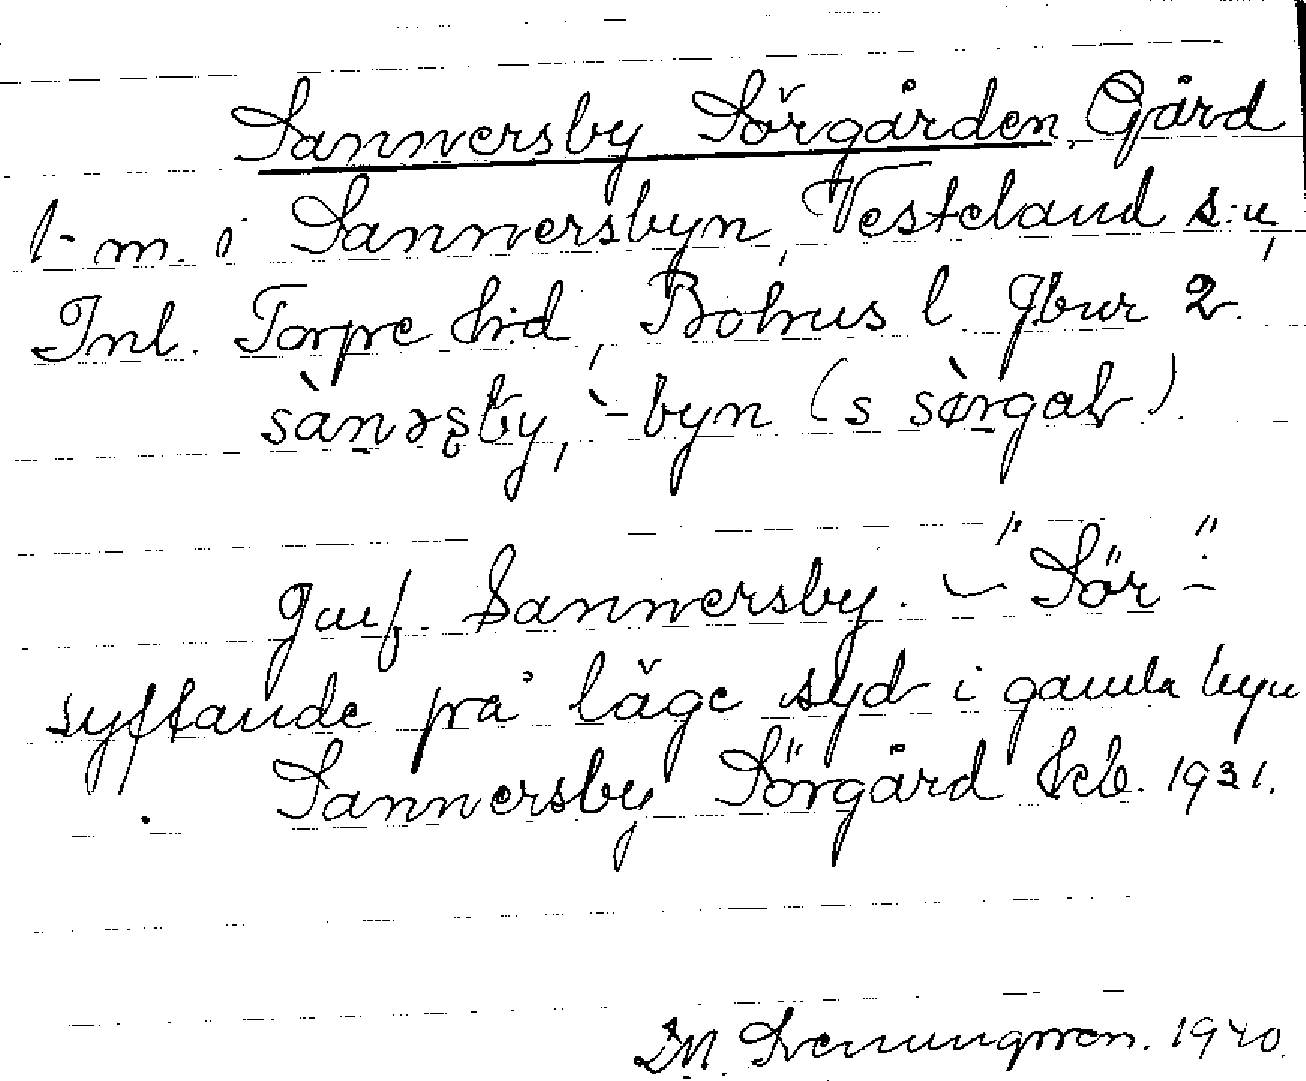 Sannersby Sörgården. Gård
1-m. i Sannersbyn, Vesteland s:n,
Inl. Torpe hrd, Bohus l Jbnr 2.
sànəʂby, `-byn (s sø̀rgaɽ).
Jmf. Sannersby. – "Sör-"
syftande på läge syd i gamla byn
Sannersby Sörgård Jeb. 1931.
M. Svenungsson. 1940.